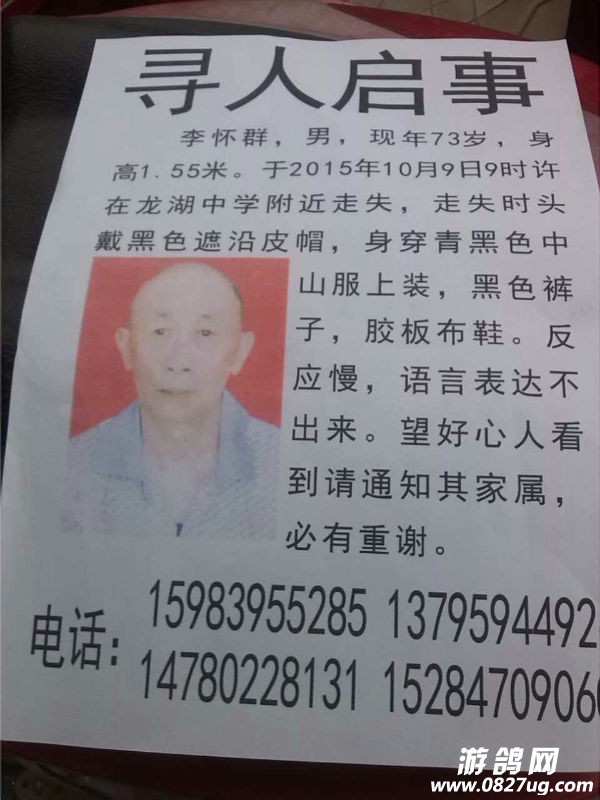 寻人启事
李怀群，男，现年73岁，身
高1.55米。于2015年10月9日9时许
在龙湖中学附近走失，走失时头
戴黑色遮沿皮帽，身穿青黑色中
山服上装，黑色裤
子，胶板布鞋。反
应慢，语言表达不
出来。望好心人看
到请通知其家属，
必有重谢。
电话：
15983955285 1379594492
14780228131 1528470906
游鸽网
www.0827ug.com